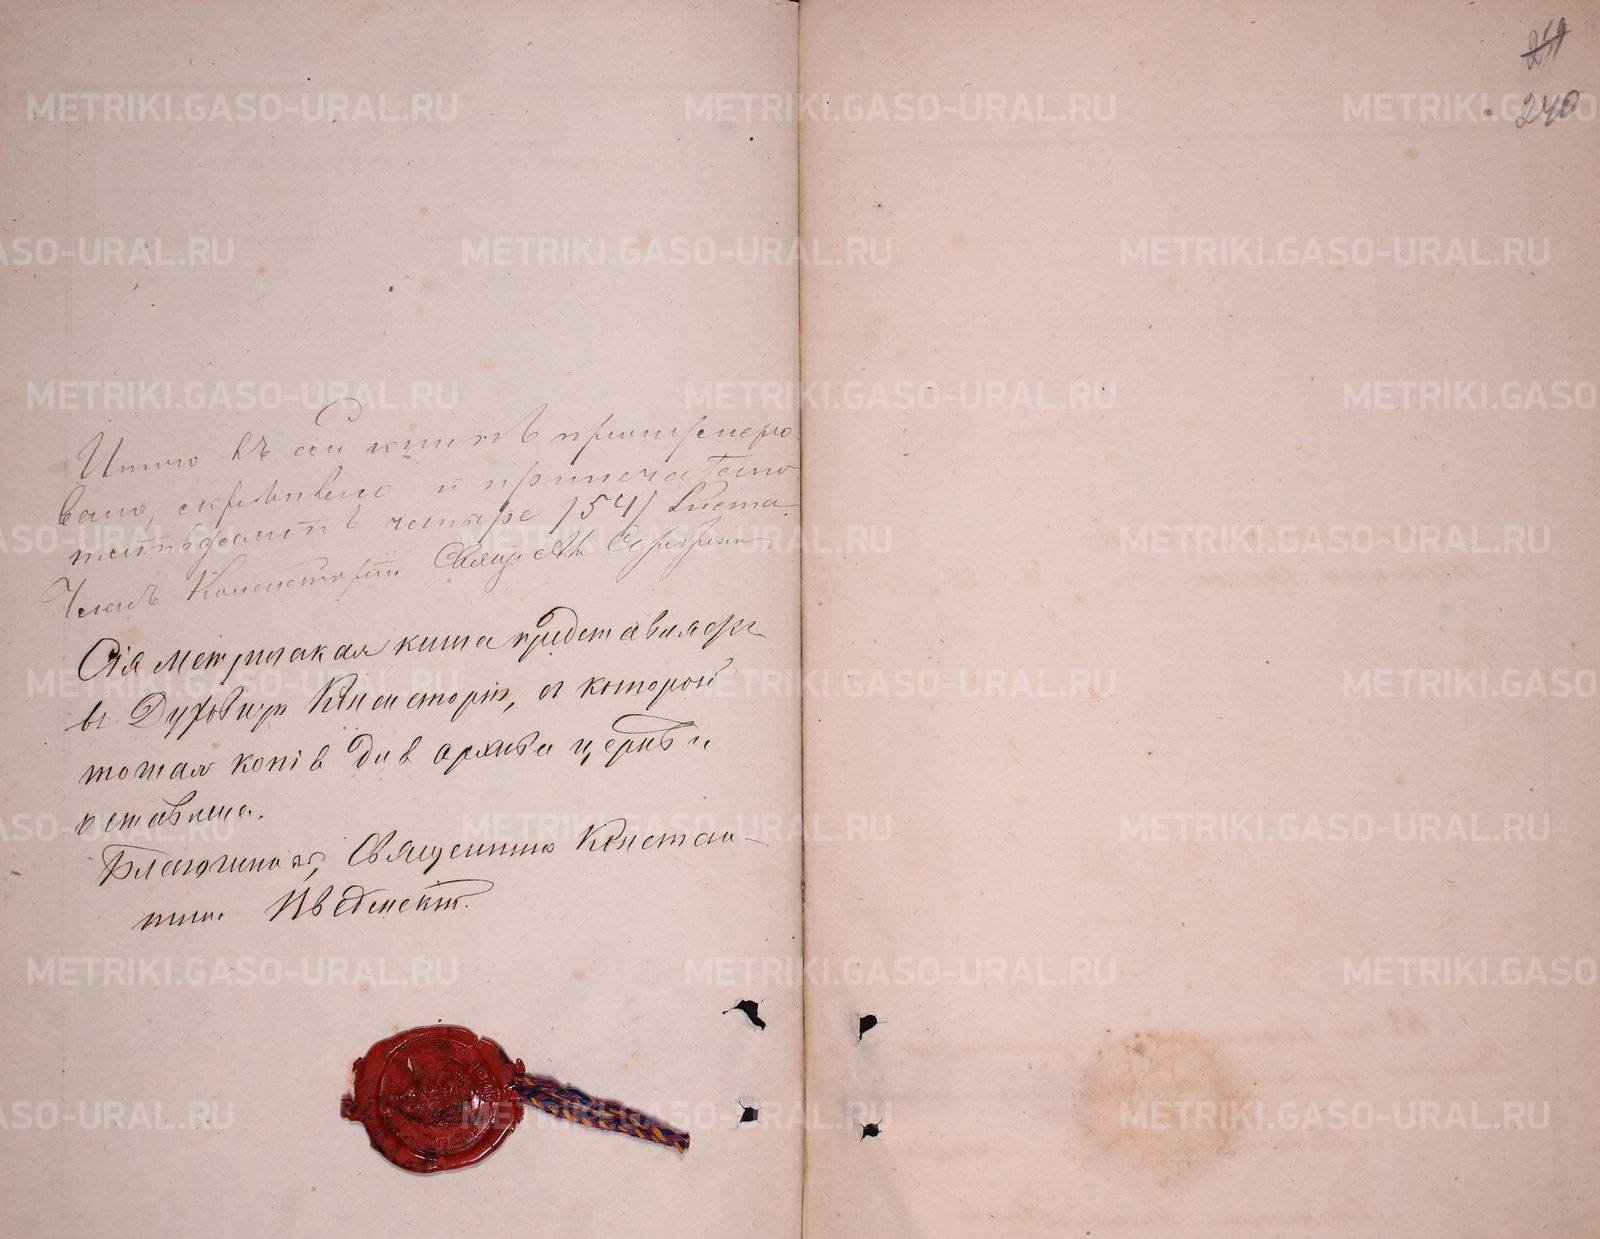 259
240
Итого въ сей книгѣ пронумеро
вано, скрѣплено и припечатано
пятьдесятъ четыре /54/ листа.
Членъ Консисторіи Свящ.
Сія метрическая книга представляется
въ Духовную Консисторію, съ которой
точная копія для архива церкви
оставлена.
Благочинный, Священникъ Констан-
тинъ Введенскій.
METRIKI.GASO-URAL.RU